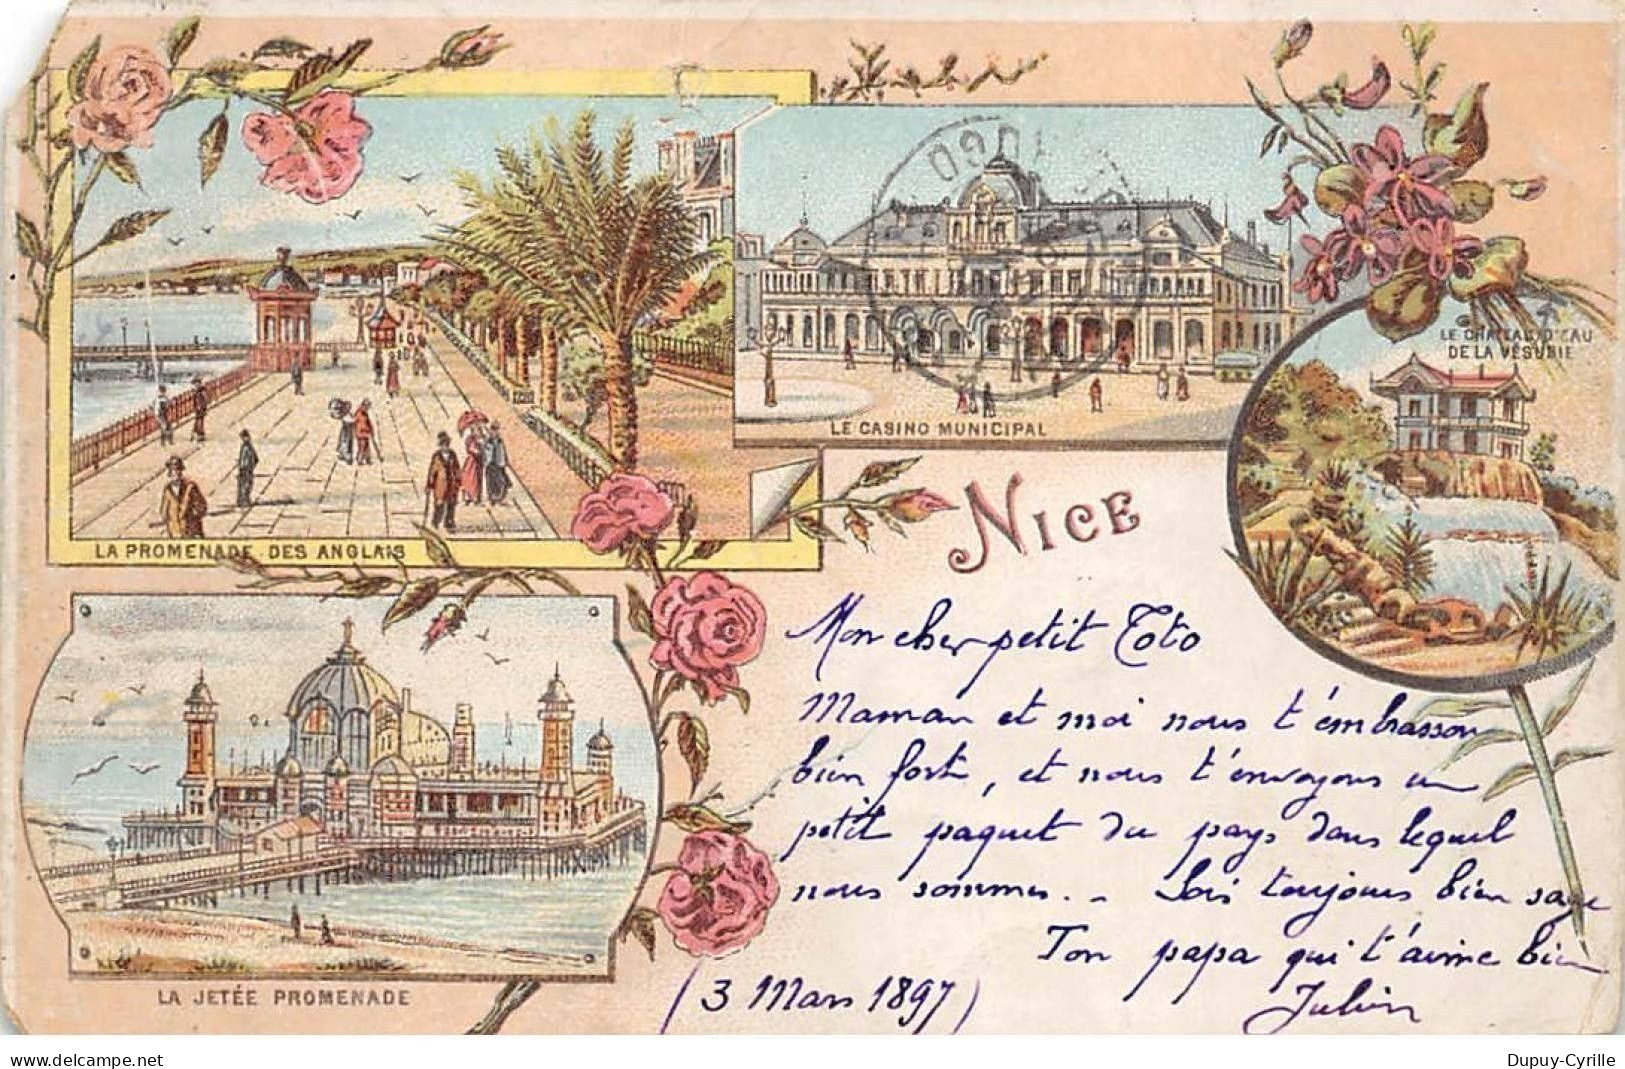 LA PROMENADE DES ANGLAIS
LE CASINO MUNICIPAL
LE CHATEAU D'EAU
DE LA VÉSUBIE
NICE
LA JETÉE PROMENADE
Mon cher petit Toto
Maman et moi nous t'embrassons
bien fort, et nous t'envoyons un
petit paquet du pays dans lequel
nous sommes. - Sois toujours bien sage
Ton papa qui t'aime bien
Julien
(3 Mars 1897)
www.delcampe.net
Dupuy-Cyrille